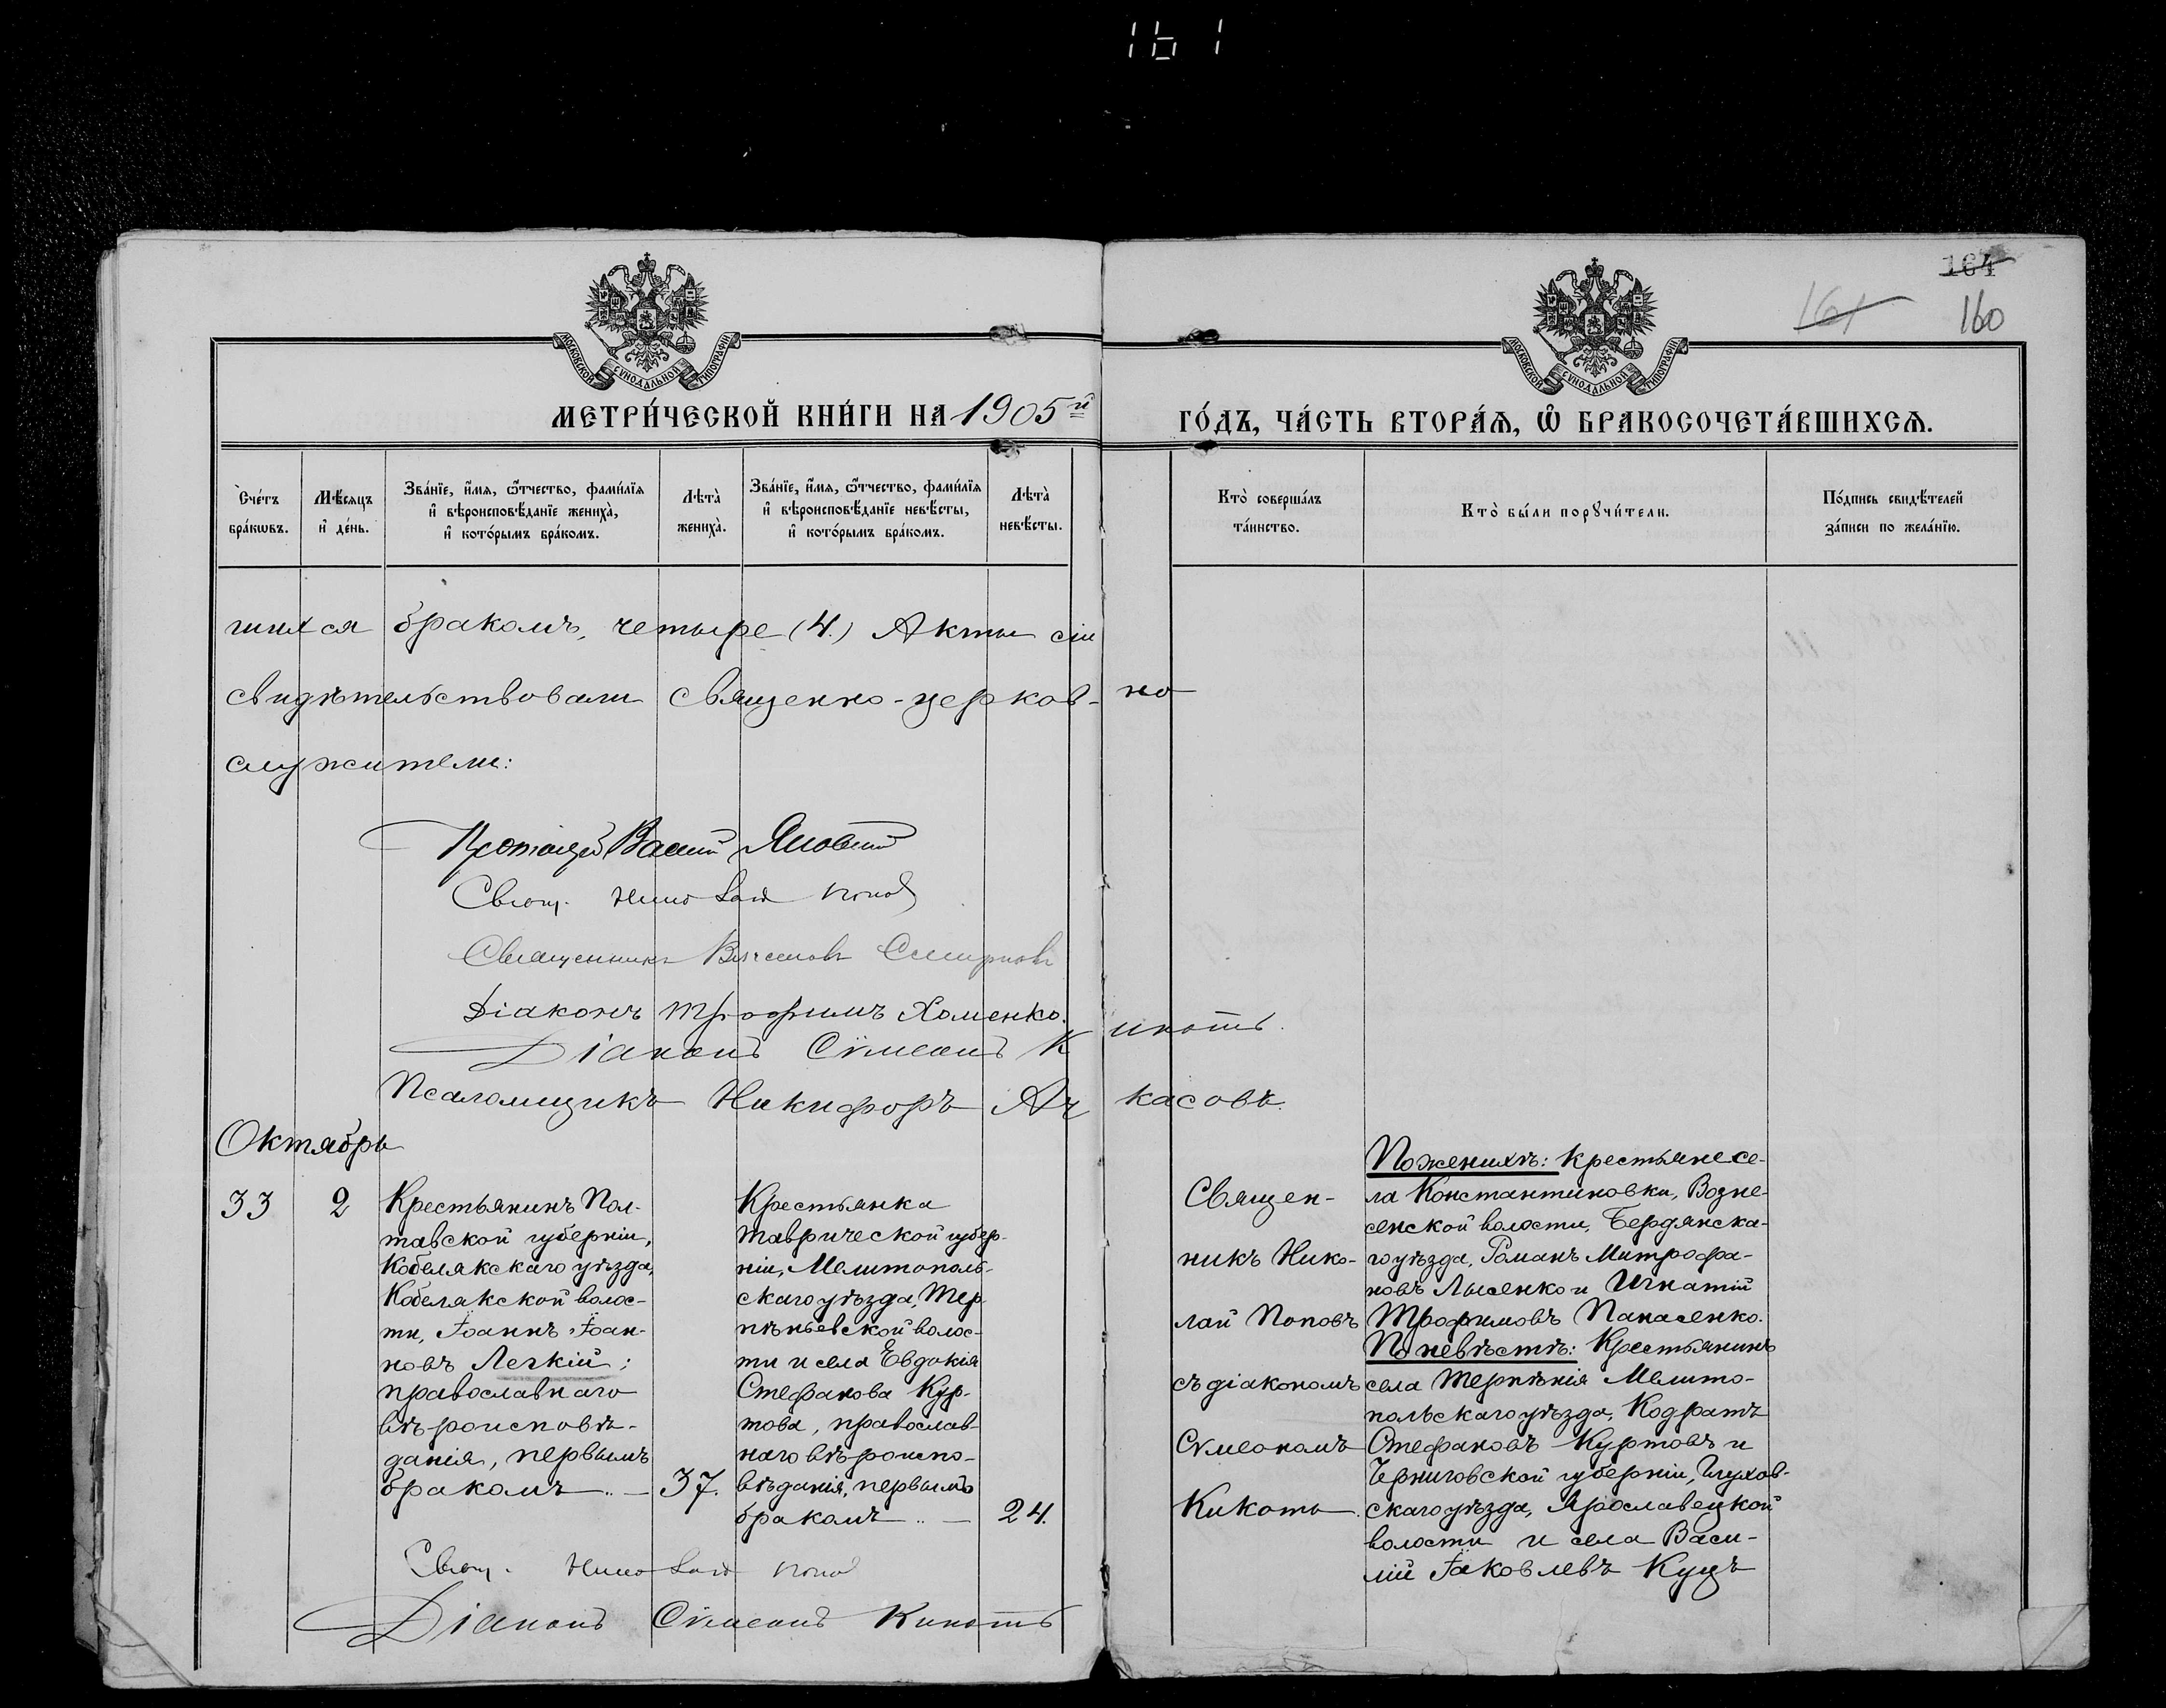 161
164
161
160
МОСКОВСКОЙ СѴНОДАЛЬНОЙ ТИПОГРАФІИ
МОСКОВСКОЙ СѴНОДАЛЬНОЙ ТИПОГРАФІИ
МЕТРИ́ЧЕСКОЙ КНИ́ГИ НА 1905й ГО́ДЪ, ЧА́СТЬ ВТОРА́Ѧ, Ѡ҆ БРАКОСОЧЕТА́ВШИХСѦ.
Сче́тъ
бра́кѡвъ.
Мѣ́сѧцъ
и҆ де́нь.
Зва́нїе, и҆́мѧ, ѻ҆́тчество, фамі́лїѧ
и҆ вѣроисповѣ́данїе жениха̀,
и҆ кото́рымъ бра́комъ.
Лѣта̀
жениха̀.
Зва́нїе, и҆́мѧ, ѻ҆́тчество, фамі́лїѧ
и҆ вѣроисповѣ́данїе невѣ́сты,
и҆ кото́рымъ бра́комъ.
Лѣта̀
невѣ́сты.
Кто̀ соверша́лъ
та́инство.
Кто̀ бы́ли порꙋчи́тели.
По́дпись свидѣ́телей
за́писи по жела́нїю.
шихся бракомъ, четыре (4.) Акты сіи
свидѣтельствовали священно-церковно
служители:
Протоіерей
Свящ. Николай Попов
Священникъ Смирновъ
Діаконъ Трофимъ Хоменко.
Діаконъ Сѵмеонъ Кикоть.
Псаломщикъ Никифоръ Ачкасовъ.
Октябрь
33
2
Крестьянинъ Пол-
тавской губерніи,
Кобелякскаго уѣзда,
Кобелякской волос-
ти, Іоаннъ Іоан-
новъ Легкій;
православнаго
вѣроисповѣ-
данія, первымъ
бракомъ .. —
37.
Крестьянка
Таврической губер-
ніи, Мелитополь-
скаго уѣзда, Тер-
пѣньевской волос-
ти и села Евдокія
Стефанова Кур-
това, православ-
наго вѣроиспо-
вѣданія, первымъ
бракомъ .. —
24.
Священ-
никъ Нико-
лай Поповъ
съ діакономъ
Сѵмеономъ
Кикоть.
По женихѣ: крестьяне се-
ла Константиновки, Возне-
сенской волости, Бердянска-
го уѣзда, Романъ Митрофа-
новъ Лысенко и Игнатій
Трофимовъ Панасенко.
По невѣстѣ: Крестьянинъ
села Терпѣнія Мелито-
польскаго уѣзда, Кодратъ
Стефановъ Куртовъ и
Черниговской губерніи, Глухов-
скаго уѣзда, Ярославецкой
волости и села Васи-
лій Іаковлевъ Куцъ
Свящ. Николай Попов
Діаконъ Сѵмеонъ Кикоть